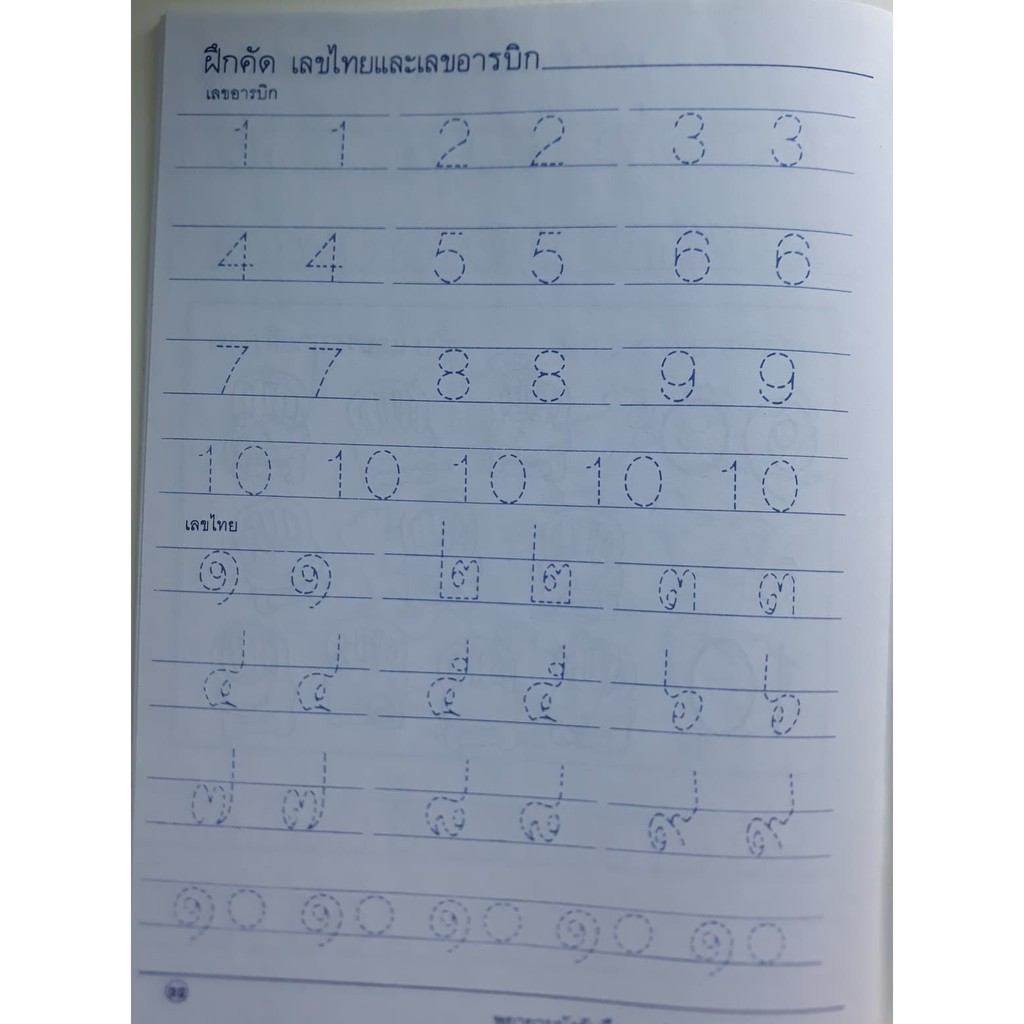 ฝึกคัด เลขไทยและเลขอารบิก
เลขอารบิก
1 1 2 2 3 3
4 4 5 5 6 6
7 7 8 8 9 9
10 10 10 10 10
เลขไทย
๑ ๑ ๒ ๒ ๓ ๓
๔ ๔ ๕ ๕ ๖ ๖
๗ ๗ ๘ ๘ ๙ ๙
๑๐ ๑๐ ๑๐ ๑๐ ๑๐